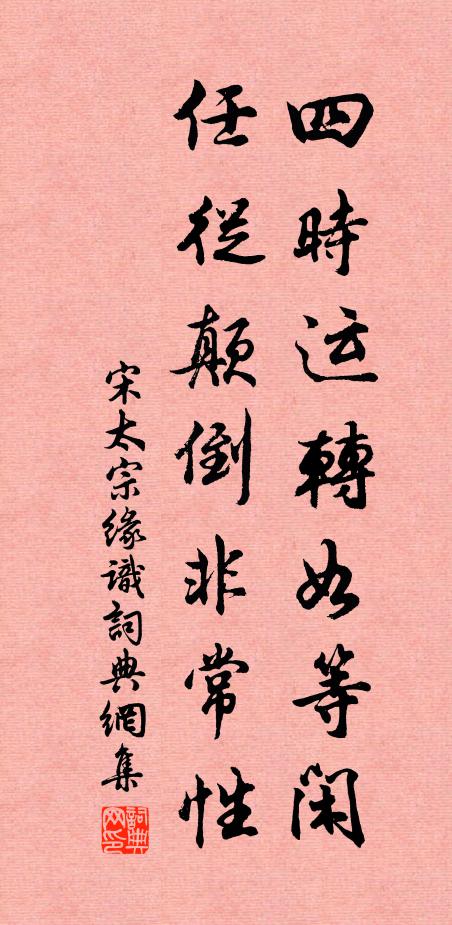 四時运轉如等閑
任從顛倒非常性
宋太宗緣識詞典網集
詞典网印